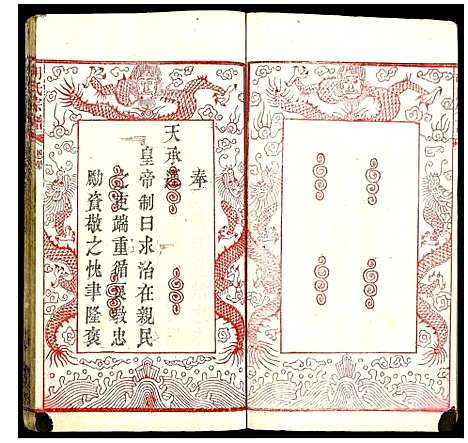 奉
天承運
皇帝制曰求治在親民
之吏端重循良教忠
勵資敬之忱聿隆褒
氏宗譜